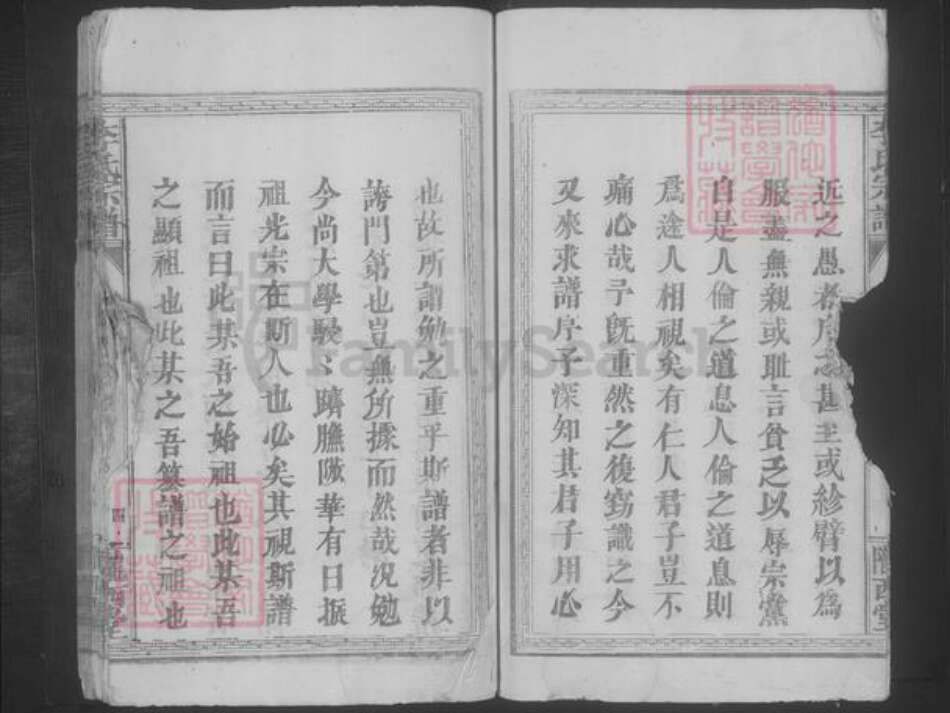 李氏宗譜
近之愚者
甚至或紾臂以為
服盡無親或耻言貧乏以辱宗黨
自是人倫之道息人倫之道息則
爲途人相視矣有仁人君子豈不
痛心哉予旣重然之復竊識之今
又來求譜序予深知其君子用心
隴西堂
也故所謂勉之重乎斯譜者非以
誇門第也豈無所據而然哉況勉
今尚大學駸〻躋膴陟華有日振
祖光宗在斯人也必矣其視斯譜
而言曰此某吾之始祖也此某吾
之顯祖也此某之吾纂譜之祖也
李氏宗譜
四
FamilySearch